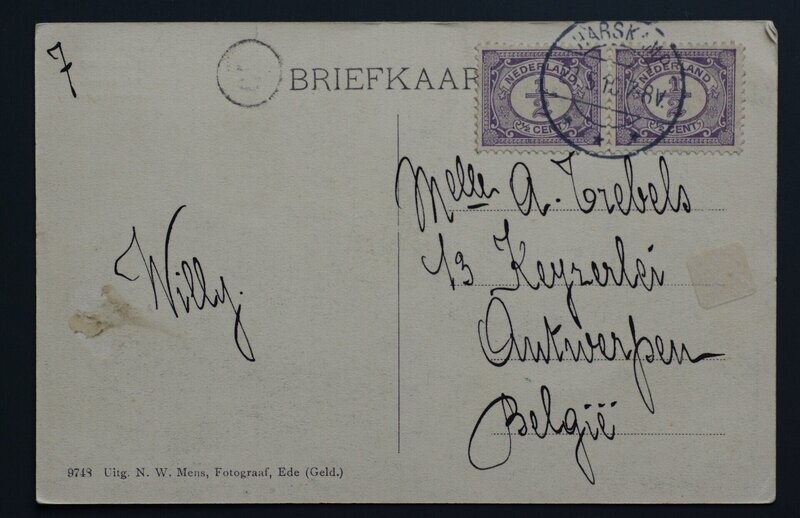 7
BRIEFKAAR
NEDERLAND
½
½ CENT
NEDERLAND
½
½ CENT
Melle A. Trebels
13 Keyzerlei
Antwerpen
België
Willy.
9748 Uitg. N. W. Mens, Fotograaf, Ede (Geld.)